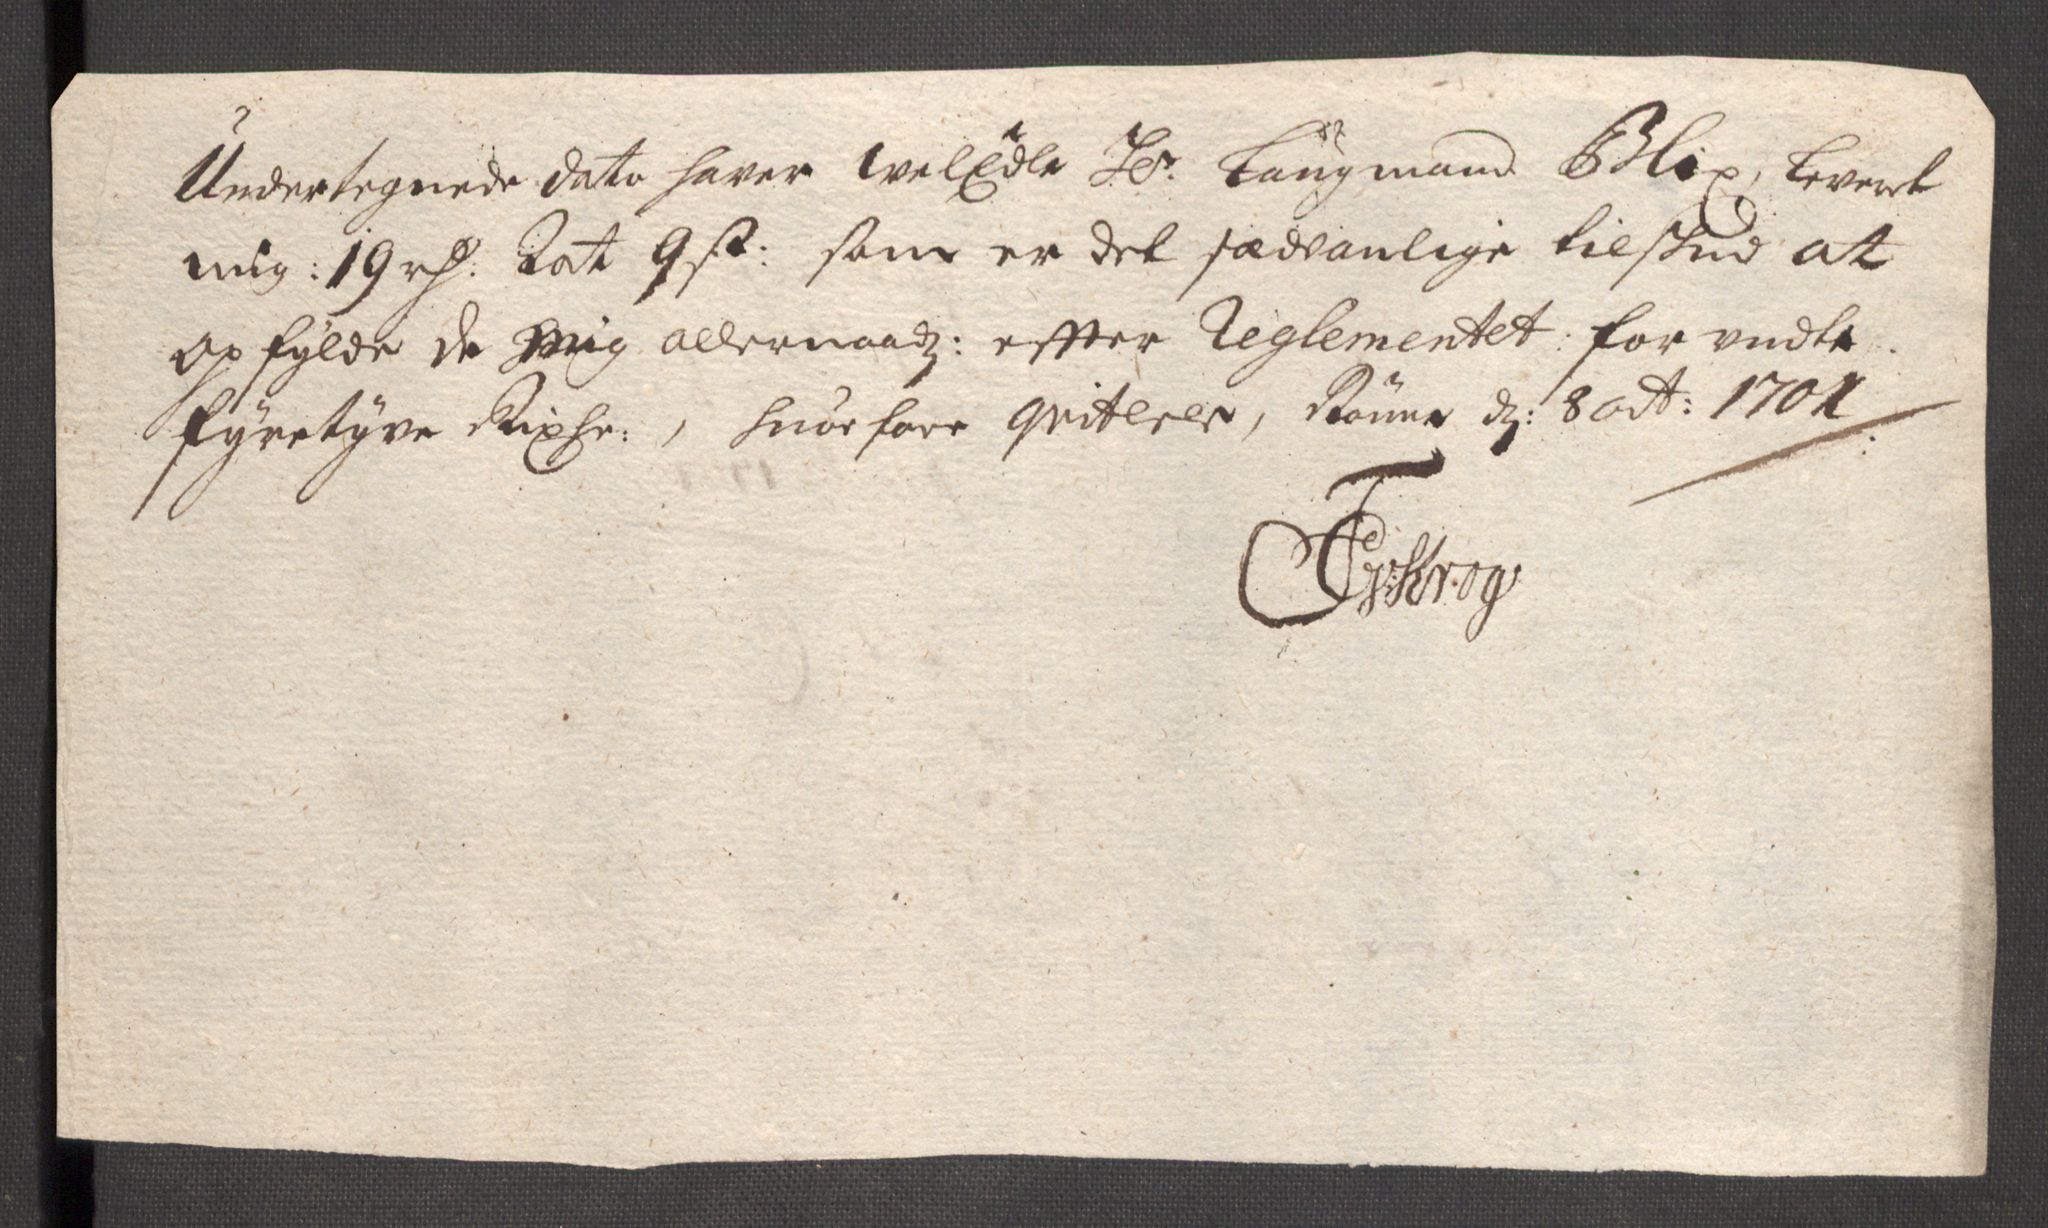 Undertegnede dato haver welEdle Hr. Laugmand Blix, Leveret
mig: 19 rh. 2 ort 9 sk: som er det sædvanlige tilskud at
opfylde de mig allernaadg: effter Reglementet: for undte
fyretyve Rixhr:, huorfore qvitteres, d: 8 oct: 1701
Krog